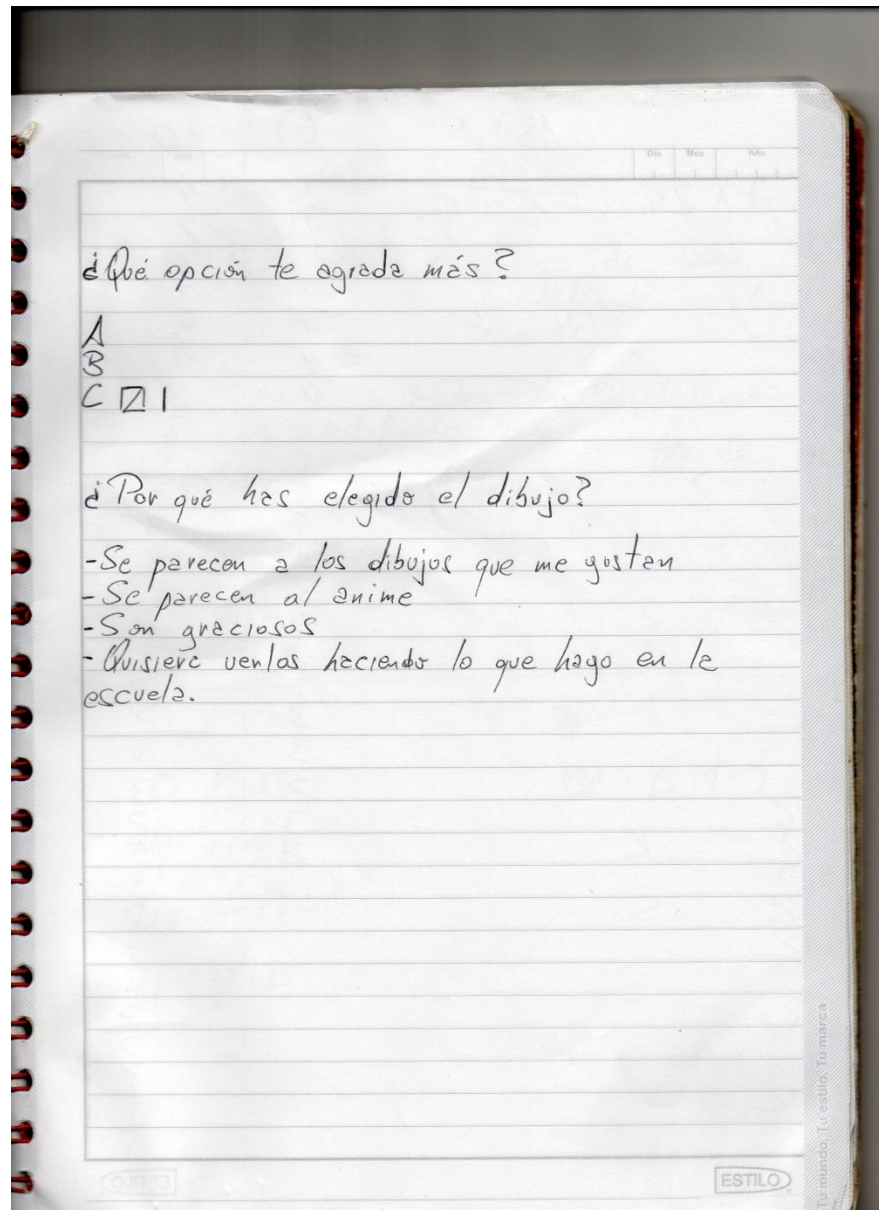 Día Mes Año
¿Qué opción te agrada más?
A
B
C ☑ |
¿Por qué has elegido el dibujo?
-Se parecen a los dibujos que me gustan
-Se parecen al anime
-Son graciosos
-Quisiera verlos haciendo lo que hago en la
escuela.
Tu mundo, Tu estilo, Tu marca
ESTILO